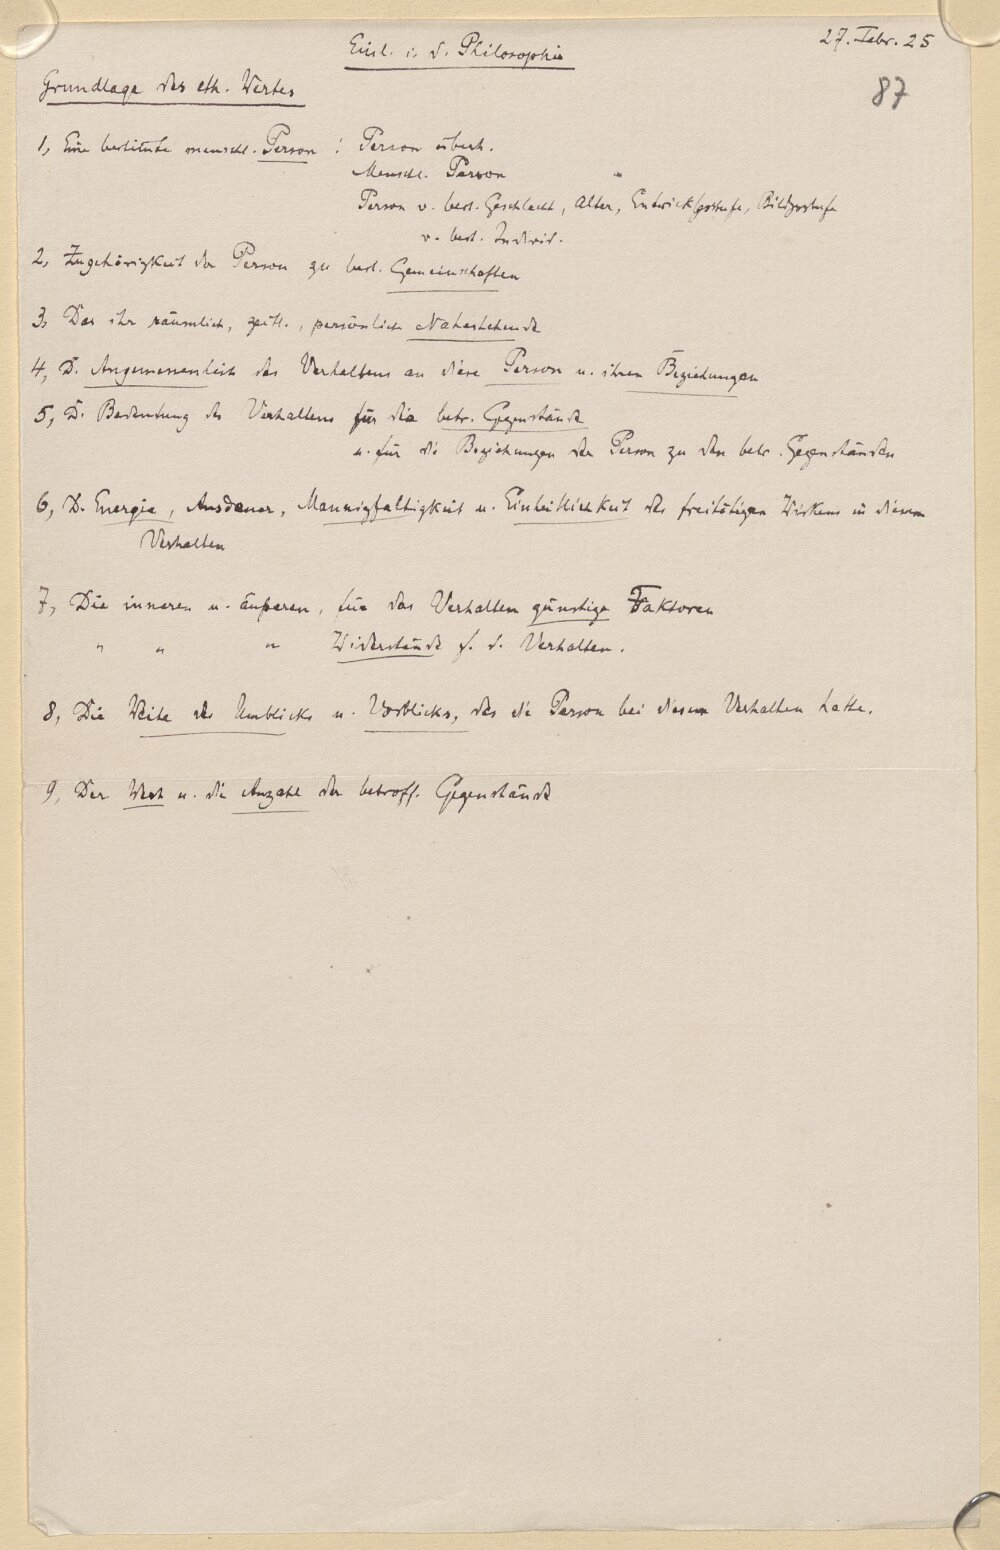 Einl. i. d. Philosophie
27. Febr. 25
87
Grundlage des eth. Wertes
1, Eine bestimmte menschl. Person : Person überh.
Menschl. Person "
Person v. best. Geschlecht, Alter, Entwicklgsstufe, Bildgsstufe
v. best. Individ.
2, Zugehörigkeit der Person zu best. Gemeinschaften
3, Das ihr räumlich, zeitl., persönlich Nahestehende
4, D. Angemessenheit des Verhaltens an diese Person u. ihren Beziehungen
5, D. Bedeutung des Verhaltens für die betr. Gegenstände
u. für die Beziehungen der Person zu den betr. Gegenständen
6, D. Energie, Ausdauer, Mannigfaltigkeit u. Einheitlichkeit des freitätigen Wirkens in diesem
Verhalten
7, Die inneren u. äußeren, für das Verhalten günstige Faktoren
" " " Widerstände f. d. Verhalten.
8, Die Weite des Umblicks u. Vorblicks, des die Person bei diesem Verhalten hatte.
9, Der Wert u. die Anzahl der betroff. Gegenstände